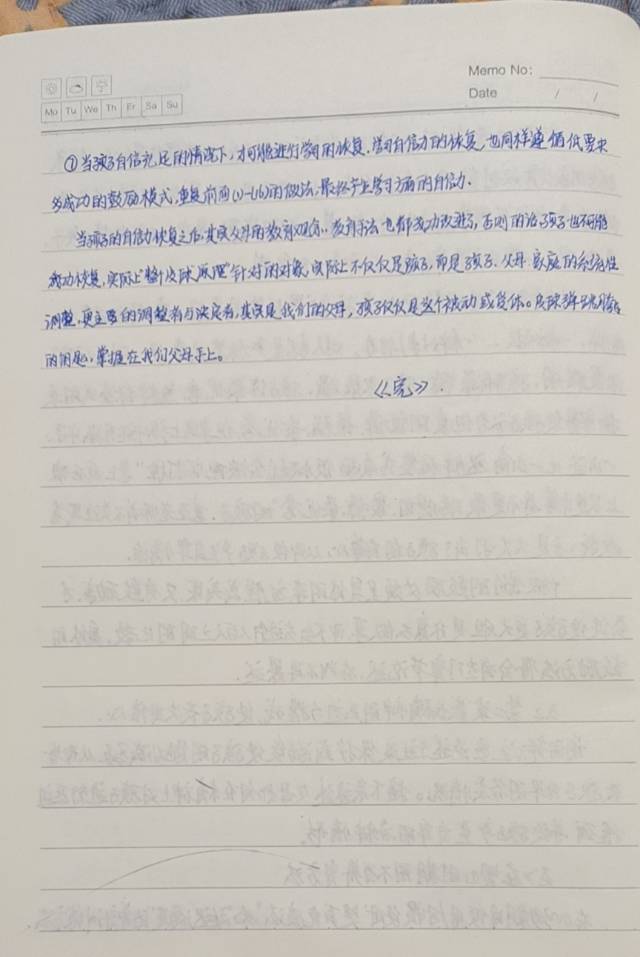 Memo No:
Mo Tu We Th Fr Sa Su
Date / /
①当孩子自信充足的情况下,才可能进行学习的恢复.学习自信力的恢复,也同样遵循低要求
多成功的鼓励模式,重复前面(1)-(6)的做法,最终产生学习方面的自信力.
当孩子的自信力恢复之后,其实父母的教育观念、教育方法也都成功改进了,否则的话孩子也不可能
成功恢复,实际上"整个皮球原理"针对的对象,实际上不仅仅是孩子,而是孩子、父母、家庭的系统性
调整,更主要的调整者与决定者,其实是我们的父母,孩子仅仅是这个被动感受体。皮球弹
的问题,掌握在我们父母手上。
《完》.